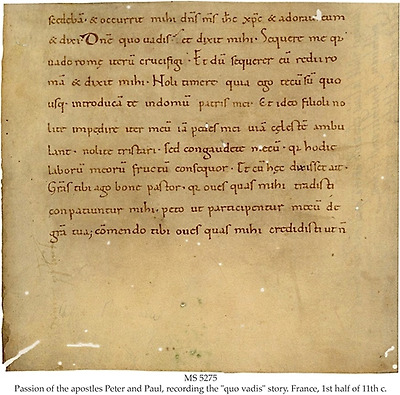 secutus & occurrit mihi dn̄s n̄s ih̄c xp̄c & adoraui eum
& dixi Dn̄e quo uadis. Et dixit mihi. Sequere me qr
uado rome iterū crucifigi. Et dū sequerer eū redii ro
mā & dixit mihi. Noli timere quia ego tecū sū quo
usq; introducā te indomū patris mei. Et ideo filioli no
lite impedire iter meū iā pedes mei uiā celestē ambu
lant. nolite tristari. sed congaudete mecū. qr hodie
laborū meorū fructū consequor. Et cū hęc dixisset ait.
Gr̄as tibi ago bone pastor. qr oues quas mihi tradisti
conpatiuntur mihi. peto ut participentur mecū de
gr̄a tua; cōmendo tibi oues quas mihi credidisti ut n̄
MS 5275
Passion of the apostles Peter and Paul, recording the "quo vadis" story. France, 1st half of 11th c.